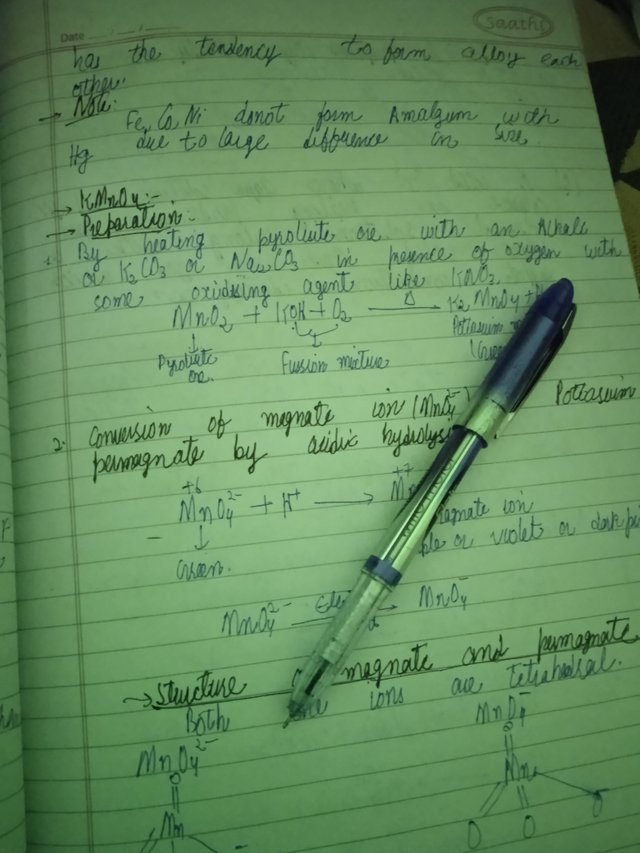 saathi
Date
has the tendency to form alloy each
other.
→ Note:
Fe, Co Ni donot form Amalgum with
Hg due to large difference in size
→ KMnO4:-
→ Preparation:
1. By heating pyrolute ore with an Alkali
or K2CO3 or Na2CO3 in presence of oxygen with
some oxidising agent like KNO3.
MnO2 + KOH + O2 —Δ→ K2MnO4 +
↓ Pyrolute ore. Fussion mixture Potassium
(Green
2. Conversion of magnate ion (MnO4 2- Pottasium
permagnate by acidic hydrolys
+6 +7
MnO4 2- + H+ → Mn
↓ magnate ion
Green. ple or violet or dark
MnO4 2- → MnO4-
→ Structure magnate and permagnate
Both ions are tetrahedral.
MnO4 2- MnO4-
O O
Mn Mn
O O O